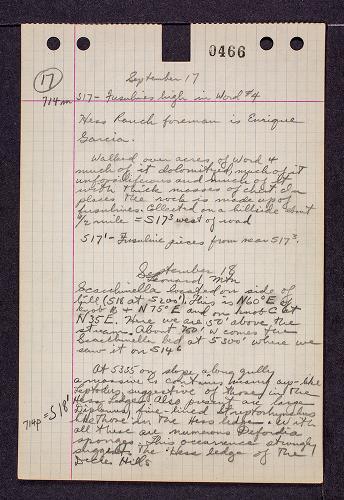 0466
17
September 17
714m S17 - Fusulines high in Word #4
Hess Ranch foreman is Enrique
Garcia.
Walked over acres of Word 4
much of it dolomitized, much of it
unfossiliferous and much of it
with thick masses of chert. In
places the rock is made up of
fusulines. Collected on a hillside about
1/2 mile = S17³ west of road
S17' - Fusuline pieces from near S17³.
September 18
Leonard Mtn
Scacchinella located on side of
hill (S18 at 5200'). This is N60°E of
knob B + N75°E and on knob C at
N35E. Here we are 50' above the
stream. About 750' W comes the
Scacchinella bed at 5300' where we
saw it on S146
At 5335 on slope along gully
a massive ls contains many cup-like
Leptodus suggestive of those in the
Hess ledge. Also present are large
Diplanus, fine-lined Streptorhynchus
like those in the Hess ledge. With
all these are numerous Defordia
sponges. This occurrence strongly
suggests the Hess ledge of the
Decie Hills
714p = S18'